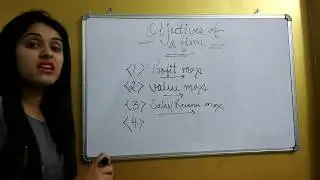 Objectives of
a firm
<1> Profit max
<2> value max
<3> Sales/Revenue max
<4>